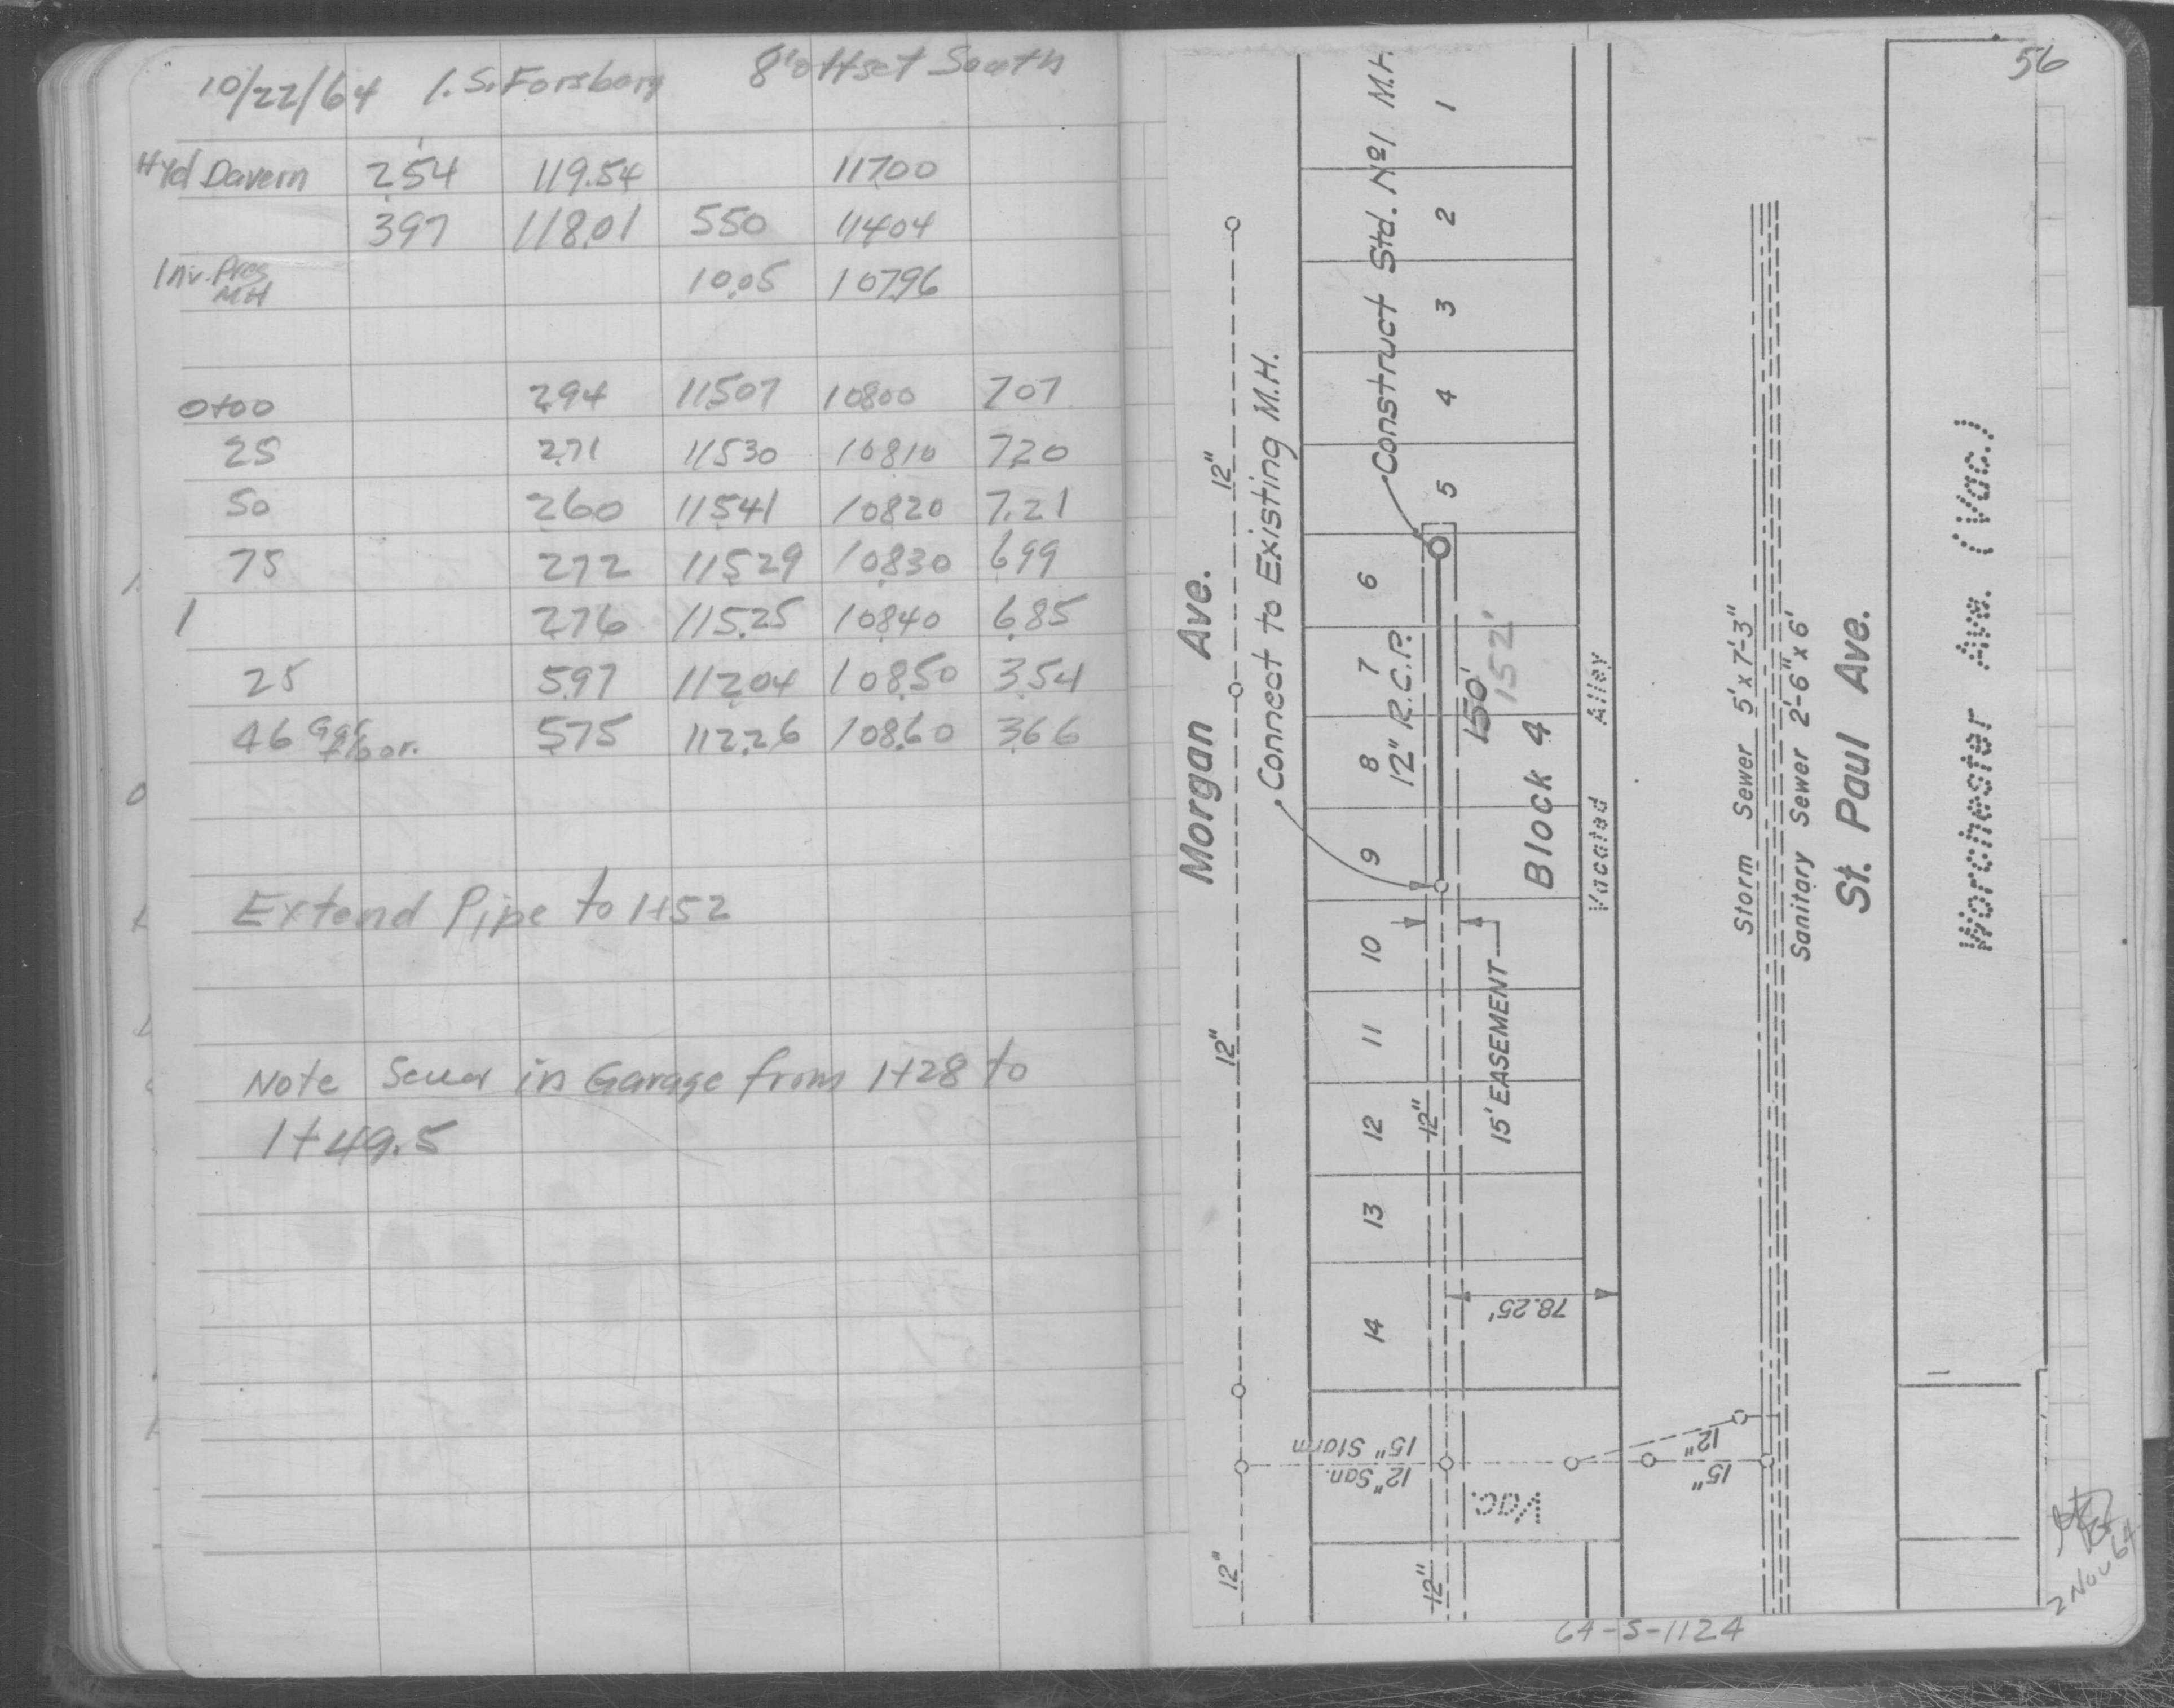 10/22/64 I.S. Forsberg 8' offset South
Hyd Davern 2.54 119.54 117.00
3.97 118.01 5.50 114.04
Inv. Pres MH 10.05 107.96
0+00 2.94 115.07 108.00 7.07
25 2.71 115.30 108.10 7.20
50 2.60 115.41 108.20 7.21
75 2.72 115.29 108.30 6.99
1 2.76 115.25 108.40 6.85
25 5.97 112.04 108.50 3.54
46 Gar. floor. 5.75 112.26 108.60 3.66
Extend Pipe to 1+52
Note Sewer in Garage from 1+28 to
1+49.5
56
Morgan Ave.
12"
12"
12"
Connect to Existing M.H.
Construct Std. No1 M.H.
1
2
3
4
5
6
7
8
9
10
11
12
13
14
12" R.C.P.
150'
152'
Block 4
Vacated Alley
15' EASEMENT
12"
12"
78.25'
15" Storm
12" San.
Vac.
12"
15"
Storm Sewer 5'x 7'-3"
Sanitary Sewer 2'-6" x 6'
St. Paul Ave.
Worchester Ave. (Vac.)
64-S-1124
2 Nov 64